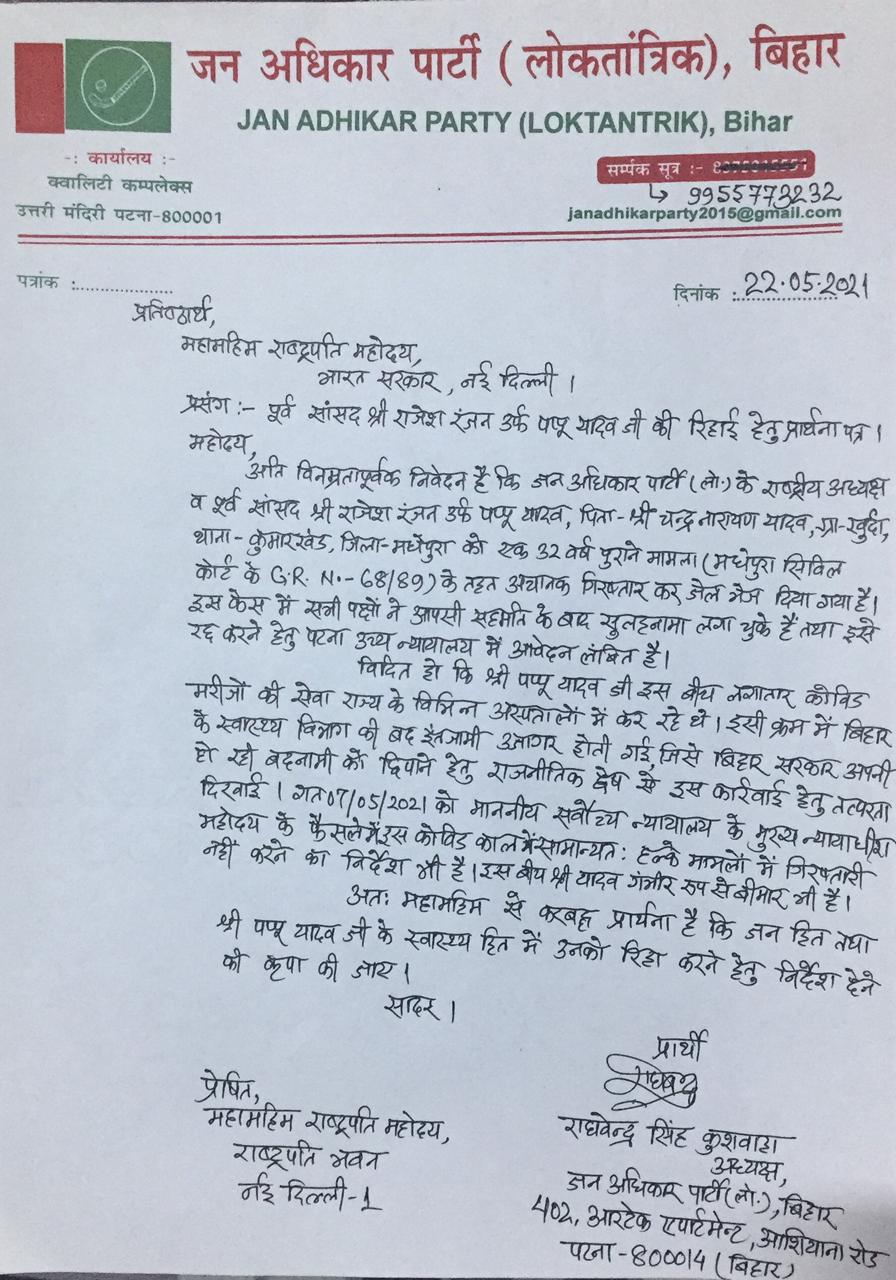 जन अधिकार पार्टी ( लोकतांत्रिक), बिहार
JAN ADHIKAR PARTY (LOKTANTRIK), Bihar
-: कार्यालय :-
क्वालिटी कम्पलेक्स
उत्तरी मंदिरी पटना-800001
सर्म्पक सूत्र :-
9955773232
janadhikarparty2015@gmail.com
पत्रांक :......................
दिनांक : 22.05.2021
प्रतिष्ठार्थ,
महामहिम राष्ट्रपति महोदय,
भारत सरकार, नई दिल्ली ।
प्रसंग :- पूर्व सांसद श्री राजेश रंजन उर्फ पप्पू यादव जी की रिहाई हेतु प्रार्थना पत्र ।
महोदय,
अति विनम्रतापूर्वक निवेदन है कि जन अधिकार पार्टी (लो.) के राष्ट्रीय अध्यक्ष
व पूर्व सांसद श्री राजेश रंजन उर्फ पप्पू यादव, पिता-श्री चन्द्र नारायण यादव, ग्रा-खुर्दा,
थाना-कुमारखंड, जिला-मधेपुरा को एक 32 वर्ष पुराने मामला (मधेपुरा सिविल
कोर्ट के G.R. N.-68/89) के तहत अचानक गिरफ्तार कर जेल भेज दिया गया है।
इस केस में सभी पक्षों ने आपसी सहमति के बाद सुलहनामा लगा चुके हैं तथा इसे
रद्द करने हेतु पटना उच्च न्यायालय में आवेदन लंबित है।
विदित हो कि श्री पप्पू यादव जी इस बीच लगातार कोविड
मरीजों की सेवा राज्य के विभिन्न अस्पतालों में कर रहे थे। इसी क्रम में बिहार
के स्वास्थ्य विभाग की बद इंतजामी उजागर होती गई, जिसे बिहार सरकार अपनी
हो रही बदनामी को छिपाने हेतु राजनीतिक द्वेष से इस कार्रवाई हेतु तत्परता
दिखाई । गत 07/05/2021 को माननीय सर्वोच्च न्यायालय के मुख्य न्यायाधीश
महोदय के फैसले में इस कोविड काल में सामान्यत: हल्के मामलों में गिरफ्तारी
नहीं करने का निर्देश भी है। इस बीच श्री यादव गंभीर रूप से बीमार भी है।
अत: महामहिम से करबद्ध प्रार्थना है कि जन हित तथा
श्री पप्पू यादव जी के स्वास्थ्य हित में उनको रिहा करने हेतु निर्देश देने
की कृपा की जाए ।
सादर ।
प्रार्थी
राघवेन्द्र सिंह कुशवाहा
अध्यक्ष,
जन अधिकार पार्टी(लो.), बिहार
402, आरटेक एपार्टमेन्ट, आशियाना रोड
पटना-800014 (बिहार)
प्रेषित,
महामहिम राष्ट्रपति महोदय,
राष्ट्रपति भवन
नई दिल्ली-1